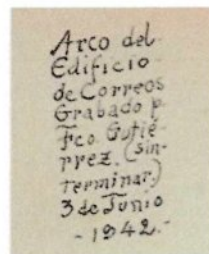 Arco del
Edificio
de Correos
Grabado p.
Fco Gutié-
rrez. (sin-
terminar)
3 de Junio
- 1942.-